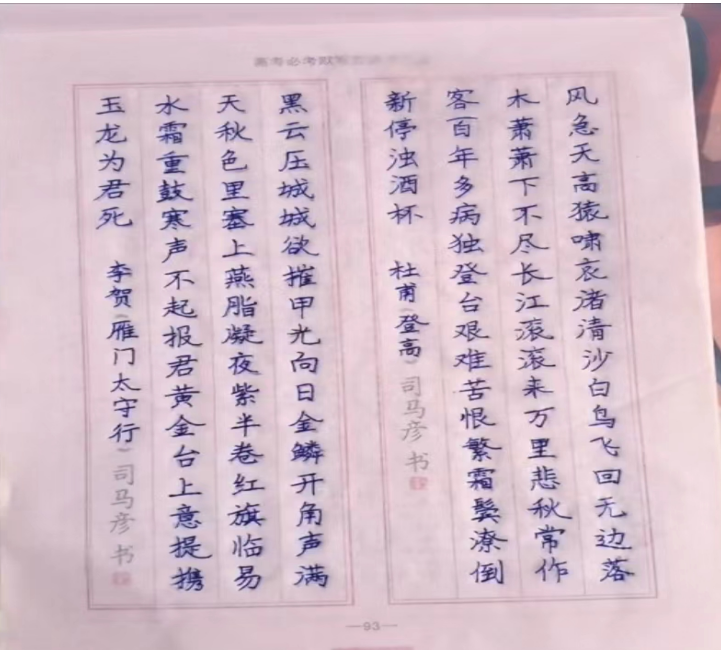 风急天高猿啸哀渚清沙白鸟飞回无边落
木萧萧下不尽长江滚滚来万里悲秋常作
客百年多病独登台艰难苦恨繁霜鬓潦倒
新停浊酒杯 杜甫《登高》司马彦书
黑云压城城欲摧甲光向日金鳞开角声满
天秋色里塞上燕脂凝夜紫半卷红旗临易
水霜重鼓寒声不起报君黄金台上意提携
玉龙为君死 李贺《雁门太守行》司马彦书
—93—